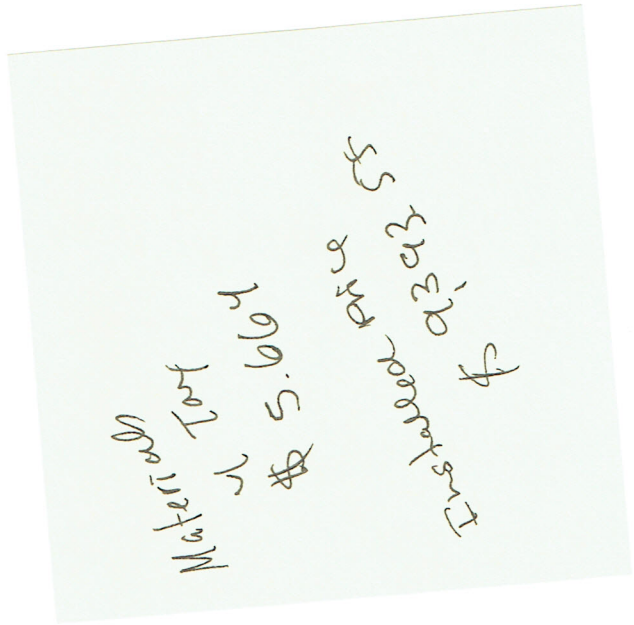 Materials
w Tax
$ 5.664
Installed Price
$ 9,393 sf